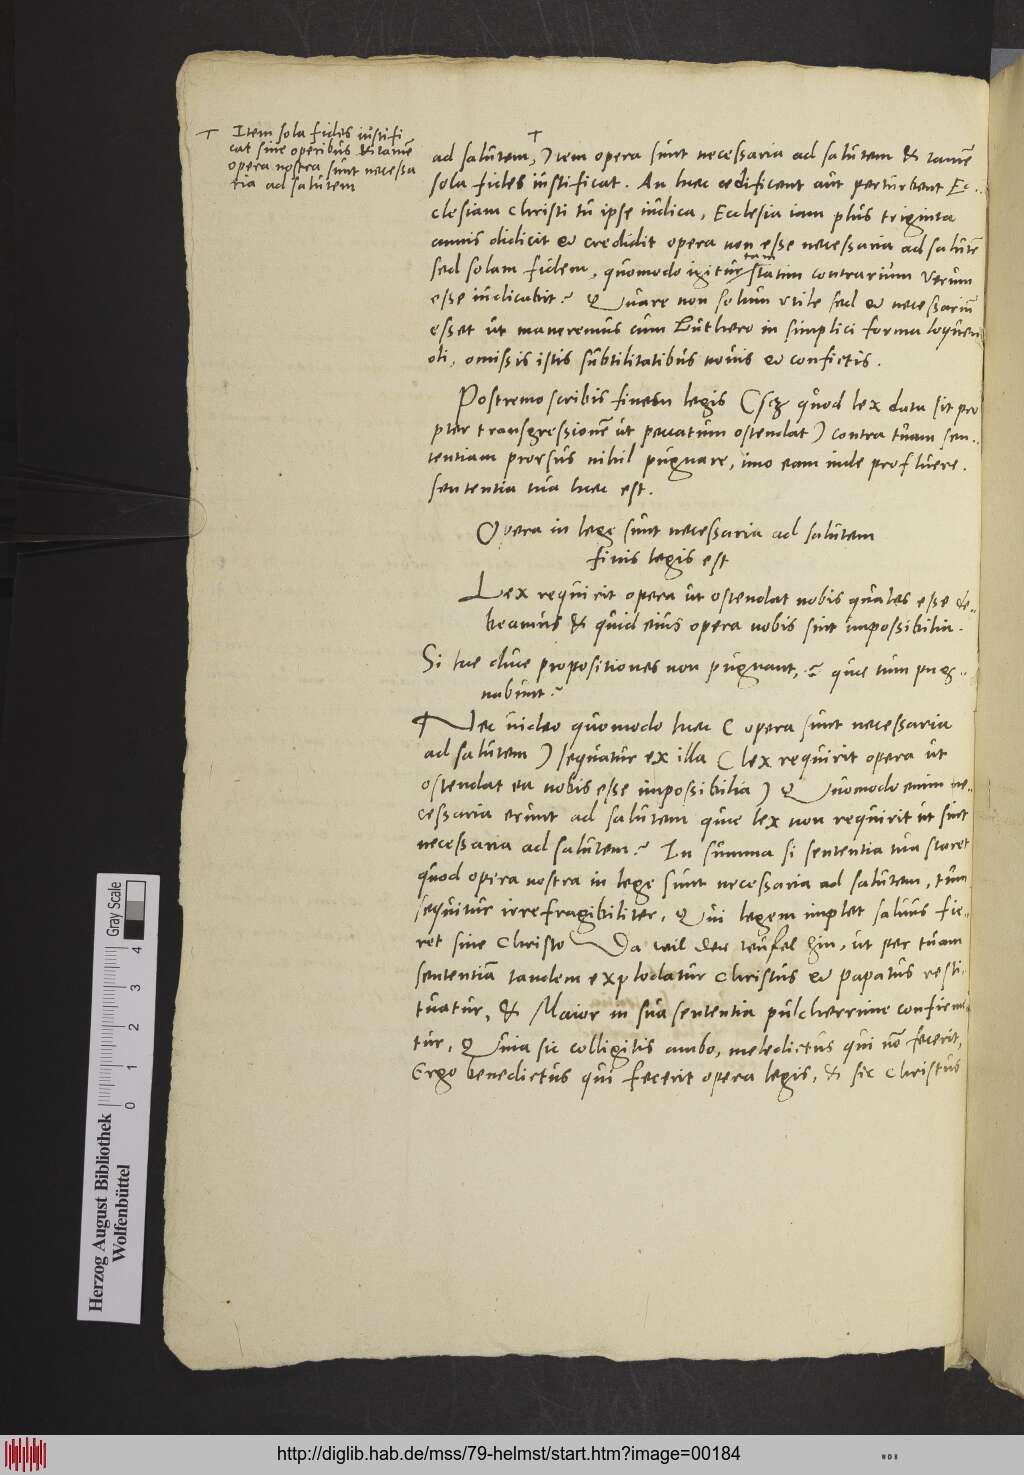 ⊤ Item sola fides iustifi
cat sine operibus & tamē
opera nostra sunt necessa
ria ad salutem
⊤
ad salutem, Item opera sunt necessaria ad salutem & tamē
sola fides iustificat. An haec edificent aut perturbent Ec-
clesiam Christi tu ipse iudica, Ecclesia iam plus triginta
annis didicit & credidit opera non esse necessaria ad salutē
sed solam fidem, quomodo igitur tam statim contrarium verum
esse iudicabit? Quare non solum vtile sed & necessariū
esset ut maneremus cum Luthero in simplici forma loquen
di, omissis istis subtilitatibus nouis & confictis.
Postremo scribis finem legis (scz quod lex data sit pro
pter transgressionē ut peccatum ostendat) contra tuam sen-
tentiam prorsus nihil pugnare, imo eam inde profluere.
sententia tua haec est.
Opera in lege sunt necessaria ad salutem
finis legis est
Lex requirit opera ut ostendat nobis quales esse de-
beamus & quid eius opera nobis sint impossibilia.
Si hae duae propositiones non pugnant, quae tum pug-
nabunt?
Nec uideo quomodo haec (opera sunt necessaria
ad salutem) sequatur ex illa (lex requirit opera ut
ostendat ea nobis esse impossibilia) Quomodo enim ne-
cessaria erunt ad salutem quae lex non requirit ut sint
necessaria ad salutem? In summa si sententia tua staret
quod opera nostra in lege sunt necessaria ad salutem, tum
sequitur irrefragibiliter, Qui legem implet saluus fie-
ret sine Christo Da wil der teufel hin, ut per tuam
sententiā tandem explodatur Christus & papatus resti-
tuatur, & Maior in sua sententia pulcherrime confirme
tur, Quia sic colligitis ambo, maledictus qui nō fecerit,
Ergo benedictus qui fecerit opera legis, & sic Christus
Gray Scale
0 1 2 3 4
Herzog August Bibliothek
Wolfenbüttel
http://diglib.hab.de/mss/79-helmst/start.htm?image=00184
WDB